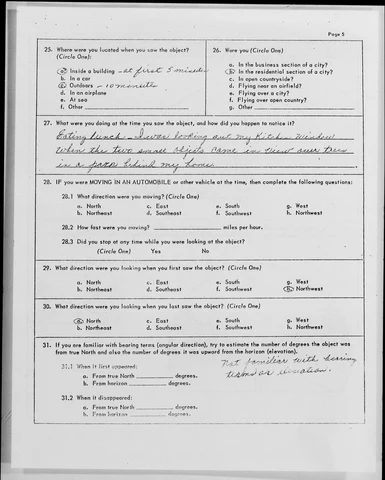 Page 5
25. Where were you located when you saw the object?
(Circle One):
a. Inside a building - at first 5 minutes
b. In a car
c. Outdoors - 10 minutes
d. In an airplane
e. At sea
f. Other
26. Were you (Circle One)
a. In the business section of a city?
b. In the residential section of a city?
c. In open countryside?
d. Flying near an airfield?
e. Flying over a city?
f. Flying over open country?
g. Other
27. What were you doing at the time you saw the object, and how did you happen to notice it?
Eating lunch - I was looking out my Kitchen Window
When the two small objects came in view over trees
in a park behind my home.
28. IF you were MOVING IN AN AUTOMOBILE or other vehicle at the time, then complete the following questions:
28.1 What direction were you moving? (Circle One)
a. North c. East e. South g. West
b. Northeast d. Southeast f. Southwest h. Northwest
28.2 How fast were you moving? miles per hour.
28.3 Did you stop at any time while you were looking at the object?
(Circle One) Yes No
29. What direction were you looking when you first saw the object? (Circle One)
a. North c. East e. South g. West
b. Northeast d. Southeast f. Southwest h. Northwest
30. What direction were you looking when you last saw the object? (Circle One)
a. North c. East e. South g. West
b. Northeast d. Southeast f. Southwest h. Northwest
31. If you are familiar with bearing terms (angular direction), try to estimate the number of degrees the object was
from true North and also the number of degrees it was upward from the horizon (elevation).
31.1 When it first appeared:
a. From true North degrees.
b. From horizon degrees.
Not familiar with bearing
terms or elevation.
31.2 When it disappeared:
a. From true North degrees.
b. From horizon degrees.